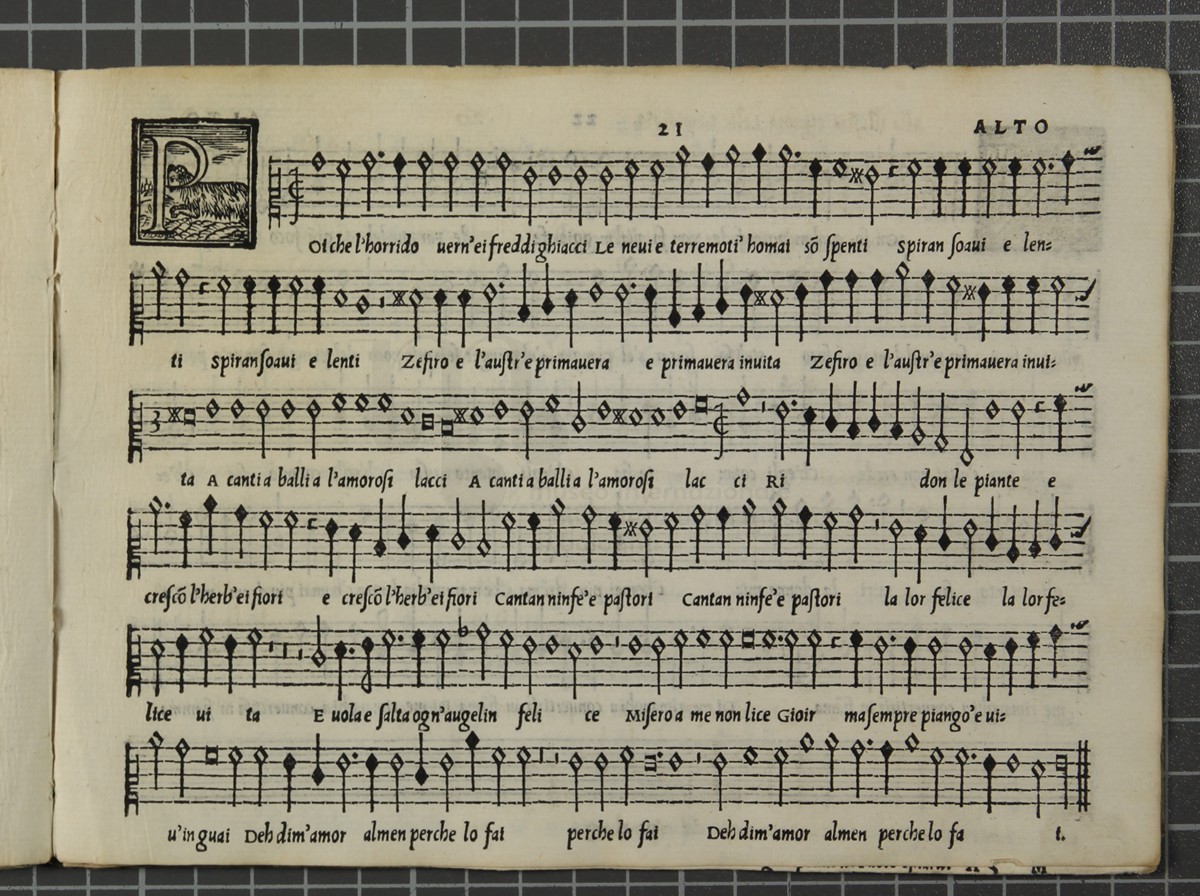 21 ALTO
POi che l'horrido uern'e i freddi ghiacci Le neui e terremoti' homai sõ ſpenti ſpiran ſoaui e len=
ti spiran ſoaui e lenti Zefiro e l'auſtr'e primauera e primauera inuita Zefiro e l'auſtr'e primauera inui=
ta A canti a balli a l'amoroſi lacci A canti a balli a l'amoroſi lac ci Ri don le piante e
creſcõ l'herb'ei fiori e creſcõ l'herb'ei fiori Cantan ninfe'e paſtori Cantan ninfe'e paſtori la lor felice la lor fe=
lice ui ta E uola e ſalta ogn'augelin feli ce Miſero a me non lice Gioir ma ſempre piango'e ui=
u'in guai Deh dim'amor almen perche lo fai perche lo fai Deh dim'amor almen perche lo fa i.